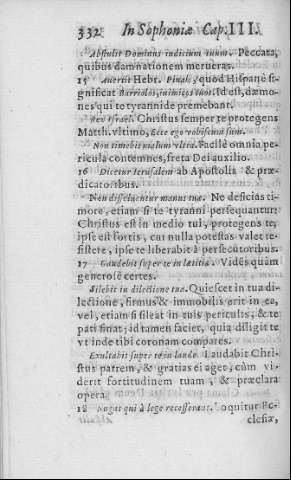 332 In Sophoniæ Cap. III.
Abstulit Dominus iudicium tuum. Peccata,
quibus damnationem merueras.
15 Auertit Hebr. Pinah, quod Hispanè si-
gnificat inimicos tuos. Id est, dæmo-
nes qui te tyrannide premebant.
Rex Israel. Christus semper te protegens
Matth. vltimo, Ecce ego vobiscum sum.
Non timebis malum vltra. Facilè omnia pe-
ricula contemnes, freta Dei auxilio.
16 Dicetur Ierusalem ab Apostolis & præ-
dicatoribus.
Non dissoluentur manus tuæ. Ne deficias ti-
more, etiam si te tyranni persequantur:
Christus est in medio tui, protegens te,
ipse est fortis, cui nulla potestas valet re-
sistere, ipse te liberabit à persecutoribus.
17 Gaudebit super te in lætitia. Vides quàm
generosè certes.
Silebit in dilectione tua. Quiescet in tua di-
lectione, firmus & immobilis erit in ea,
vel, etiam si sileat in tuis periculis, & te
pati sinat; id tamen faciet, quia diligit te
vt inde tibi coronam compares.
Exultabit super te in laude. Laudabit Chri-
stus patrem, & gratias ei aget, cùm vi-
derit fortitudinem tuam, & præclara
opera.
18 Nugas qui à lege recesserant. Loquitur Ec-
clesiæ,